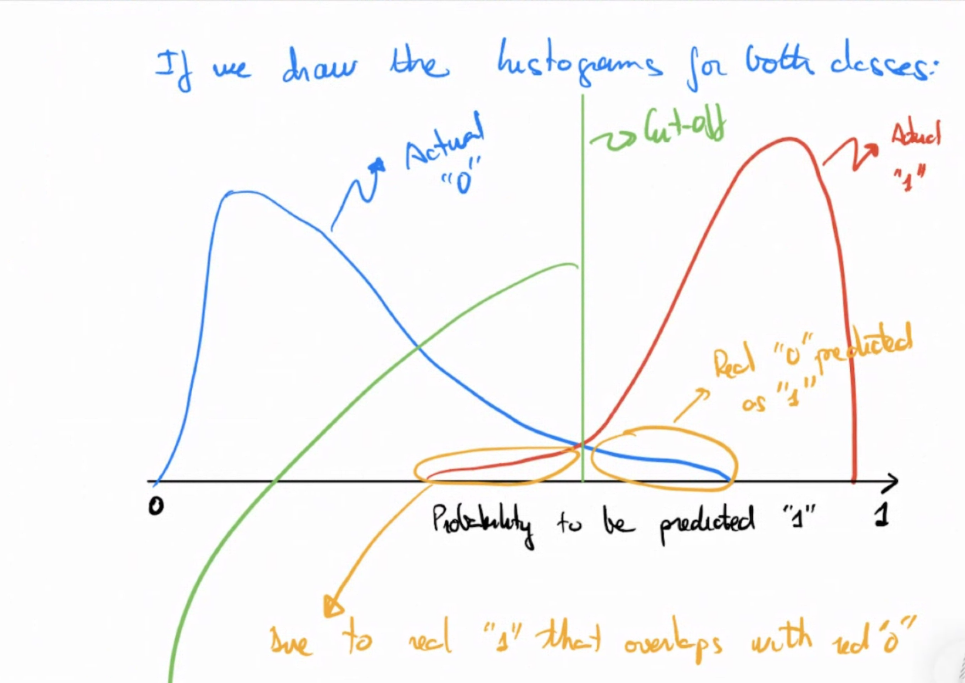 If we draw the histograms for both classes:
Cut-off
Actual
"0"
Actual
"1"
Real "0" predicted
as "1"
0
Probability to be predicted "1"
1
Due to real "1" that overlaps with real "0"